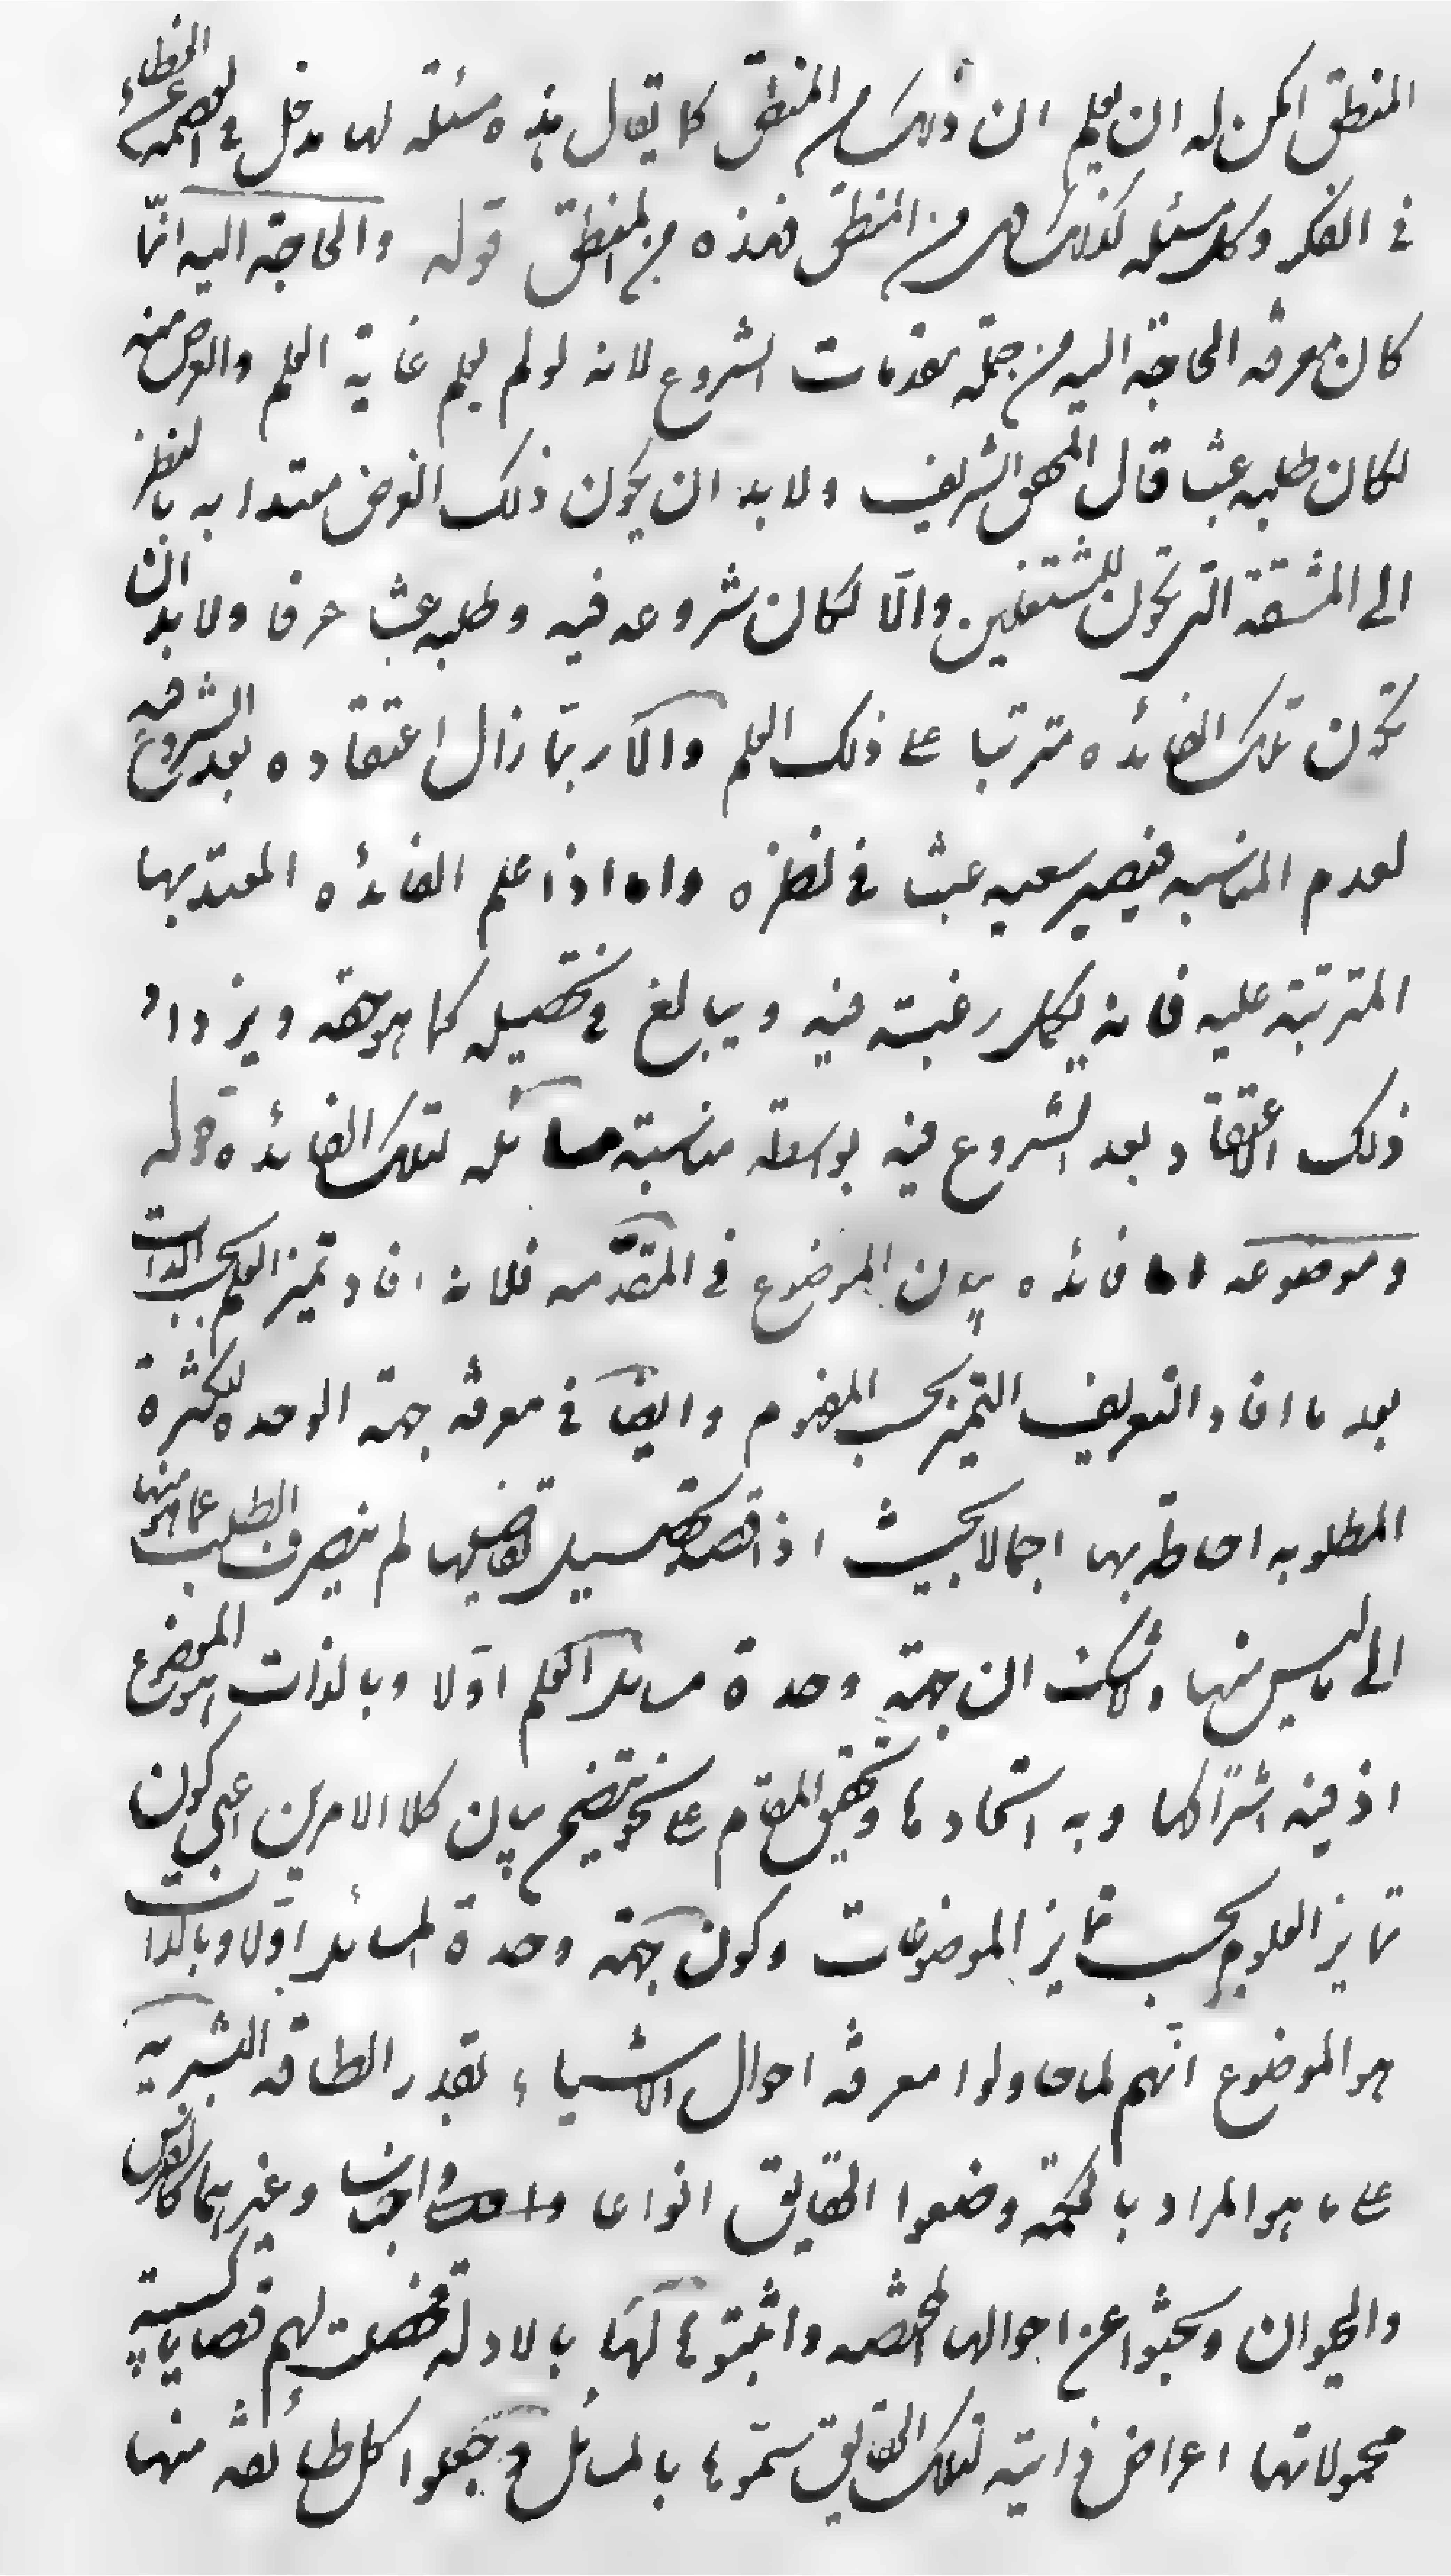 المنطق امكن له ان يعلم ان ذلك من المنطق كما يقال هذه مسئلة لها مدخل في العصمة عن الخطاء
في الفكر وكل مسئلة كذلك فهي من المنطق فهذه من المنطق قوله والحاجة اليه انّما
كان معرفة الحاجة اليه من جملة مقدمات الشروع لانه لو لم يعلم غاية العلم والغرض منه
لكان طلبه عبثا قال المحقق الشريف ولا بد ان يكون ذلك الغرض معتدا به بالنظر
الى المشقة التي تكون للمشتغلين والّا لكان شروعه فيه وطلبه عبثا عرفا ولا بد ان
تكون تلك الفائده مترتبا على ذلك العلم والّا ربّما زال اعتقاده بعد الشروع فيه
لعدم المناسبه فيصير سعيه عبثا في نظره واما اذا علم الفائده المعتدّ بها
المترتبة عليه فانه يكمل رغبته فيه ويبالغ في تحصيله كما هو حقه ويزداد
ذلك الاعتقاد بعد الشروع فيه بواسطة مناسبة مسائله لتلك الفائده قوله
وموضوعه اما فائده بيان الموضوع في المقدّمه فلانه افاد تميز العلم بحسب الذات
بعد ما افاد التعريف التميز بحسب المفهوم وايضا في معرفة جهة الوحده للكثرة
المطلوبه احاطة بها اجمالا بحيث اذا قصد تحصيل تفاصيلها لم ينصرف الطلب عما هو منها
الى ما ليس منها ولا شك ان جهة وحدة مسائل العلم اوّلا وبالذات هو الموضوع
اذ فيه اشتراكها وبه اتحادها وتحقيق المقام على نحو يتضح بيان كلا الامرين اعني كون
تمايز العلوم بحسب تمايز الموضوعات وكون جهة وحدة المسائل اوّلا وبالذات
هو الموضوع انّهم لما حاولوا معرفة احوال الاشياء بقدر الطاقة البشرية
على ما هو المراد بالحكمة وضعوا الحقايق انواعا واجناسا وغيرهما كالانس
والحيوان وبحثوا عن احوالها المختصه واثبتوها لها بالادلة فحصلت لهم قضايا كسبية
محمولاتها اعراض ذاتية لتلك الحقايق سمّوها بالمسائل وجعلوا كل طائفة منها